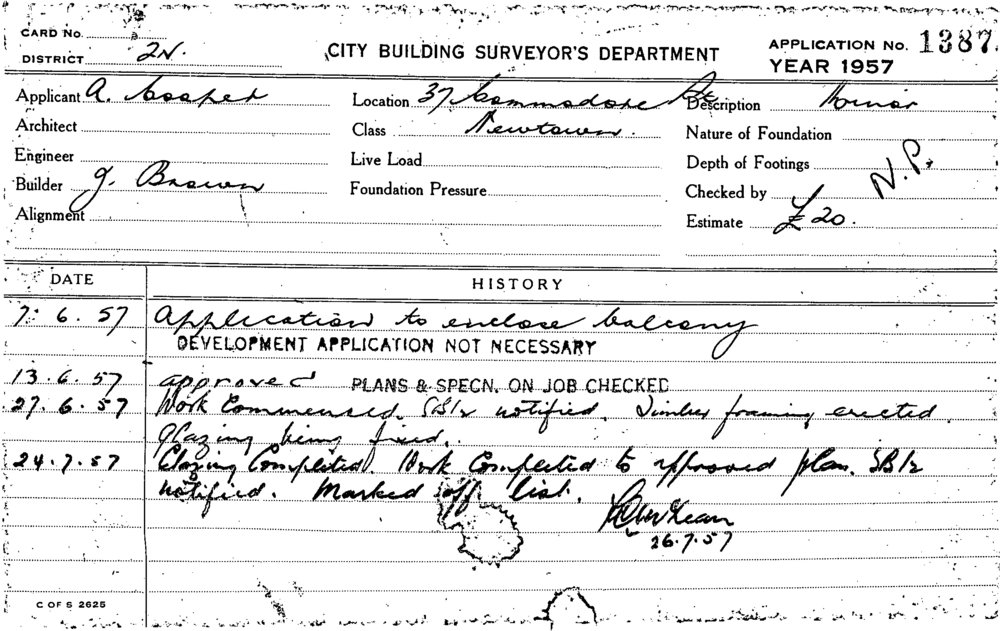 CARD No.
DISTRICT 2N.
CITY BUILDING SURVEYOR'S DEPARTMENT
APPLICATION No. 1387.
YEAR 1957
Applicant A. Cooper
Location 37 Commodore St
Description Minor
Architect
Class Newtown.
Nature of Foundation
Engineer
Live Load
Depth of Footings
N.P.
Builder G. Brown
Foundation Pressure
Checked by
Alignment
Estimate £20.
DATE HISTORY
7. 6. 57 Application to enclose balcony
DEVELOPMENT APPLICATION NOT NECESSARY
13. 6. 57 approved PLANS & SPECN. ON JOB CHECKED
27. 6. 57 Work Commenced. notified. Timber framing erected
glazing being fixed.
24. 7. 57 Glazing Completed. Work Completed to approved plan.
notified. Marked off list.
26.7.57
C OF S 2625